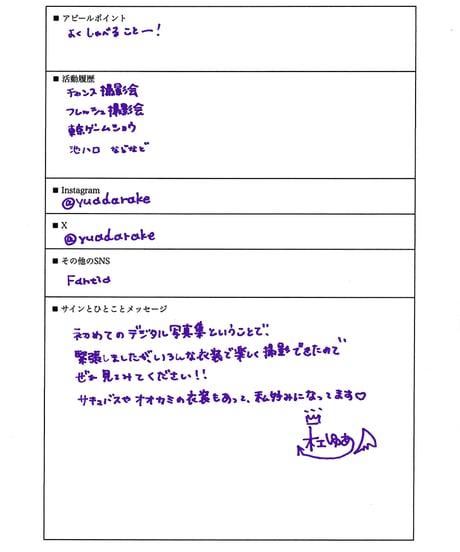 ■ アピールポイント
よくしゃべることー！
■ 活動履歴
チャンス撮影会
フレッシュ撮影会
東京ゲームショウ
池ハロ などなど
■ Instagram
@yuadarake
■ X
@yuadarake
■ その他のSNS
Fantia
■ サインとひとことメッセージ
初めてのデジタル写真集ということで、
緊張しましたがいろんな衣装で楽しく撮影できたので
ぜひ見てみてください！！
サキュバスやオオカミの衣装もあって、私好みになってます♡